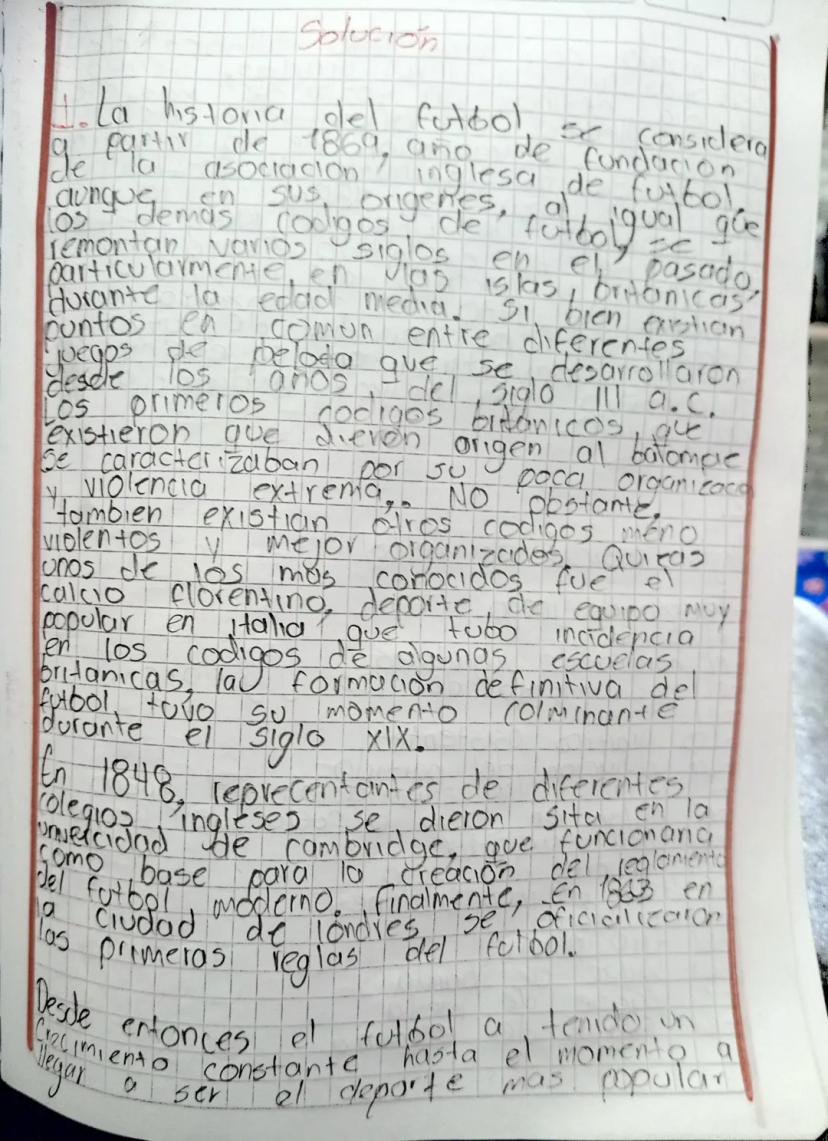 Solución
1. La historia del futbol se considera
a partir de 1869, año de fundacion
de la asociacion inglesa de futbol,
aunque en sus origenes, al igual que
los demas codigos de futbol, se
remontan varios siglos en el pasado,
particularmente en las islas britanicas,
durante la edad media. Si bien existian
puntos en comun entre diferentes
juegos de pelota que se desarrollaron
desde los años del siglo III a.c.
Los primeros codigos britanicos, que
existieron que dieron origen al balompie
se caracterizaban por su poca organizacio
y violencia extrema,. No obstante,
tambien existian otros codigos meno
violentos y mejor organizados, Quizas
unos de los mas conocidos fue el
calcio florentino, deporte de equipo muy
popular en italia que tubo incidencia
en los codigos de algunas escuelas
britanicas, la formacion definitiva del
futbol tuvo su momento colminante
durante el siglo XIX.
En 1848, reprecentantes de diferentes
colegios ingleses se dieron sita en la
univercidad de cambridge, que funcionaria
como base para la creación del reglamento
del futbol moderno. Finalmente, En 1863 en
la ciudad de londres se oficializaron
las primeras reglas del futbol.
Desde entonces el futbol a tenido un
crecimiento constante hasta el momento a
llegar a ser el deporte mas popular